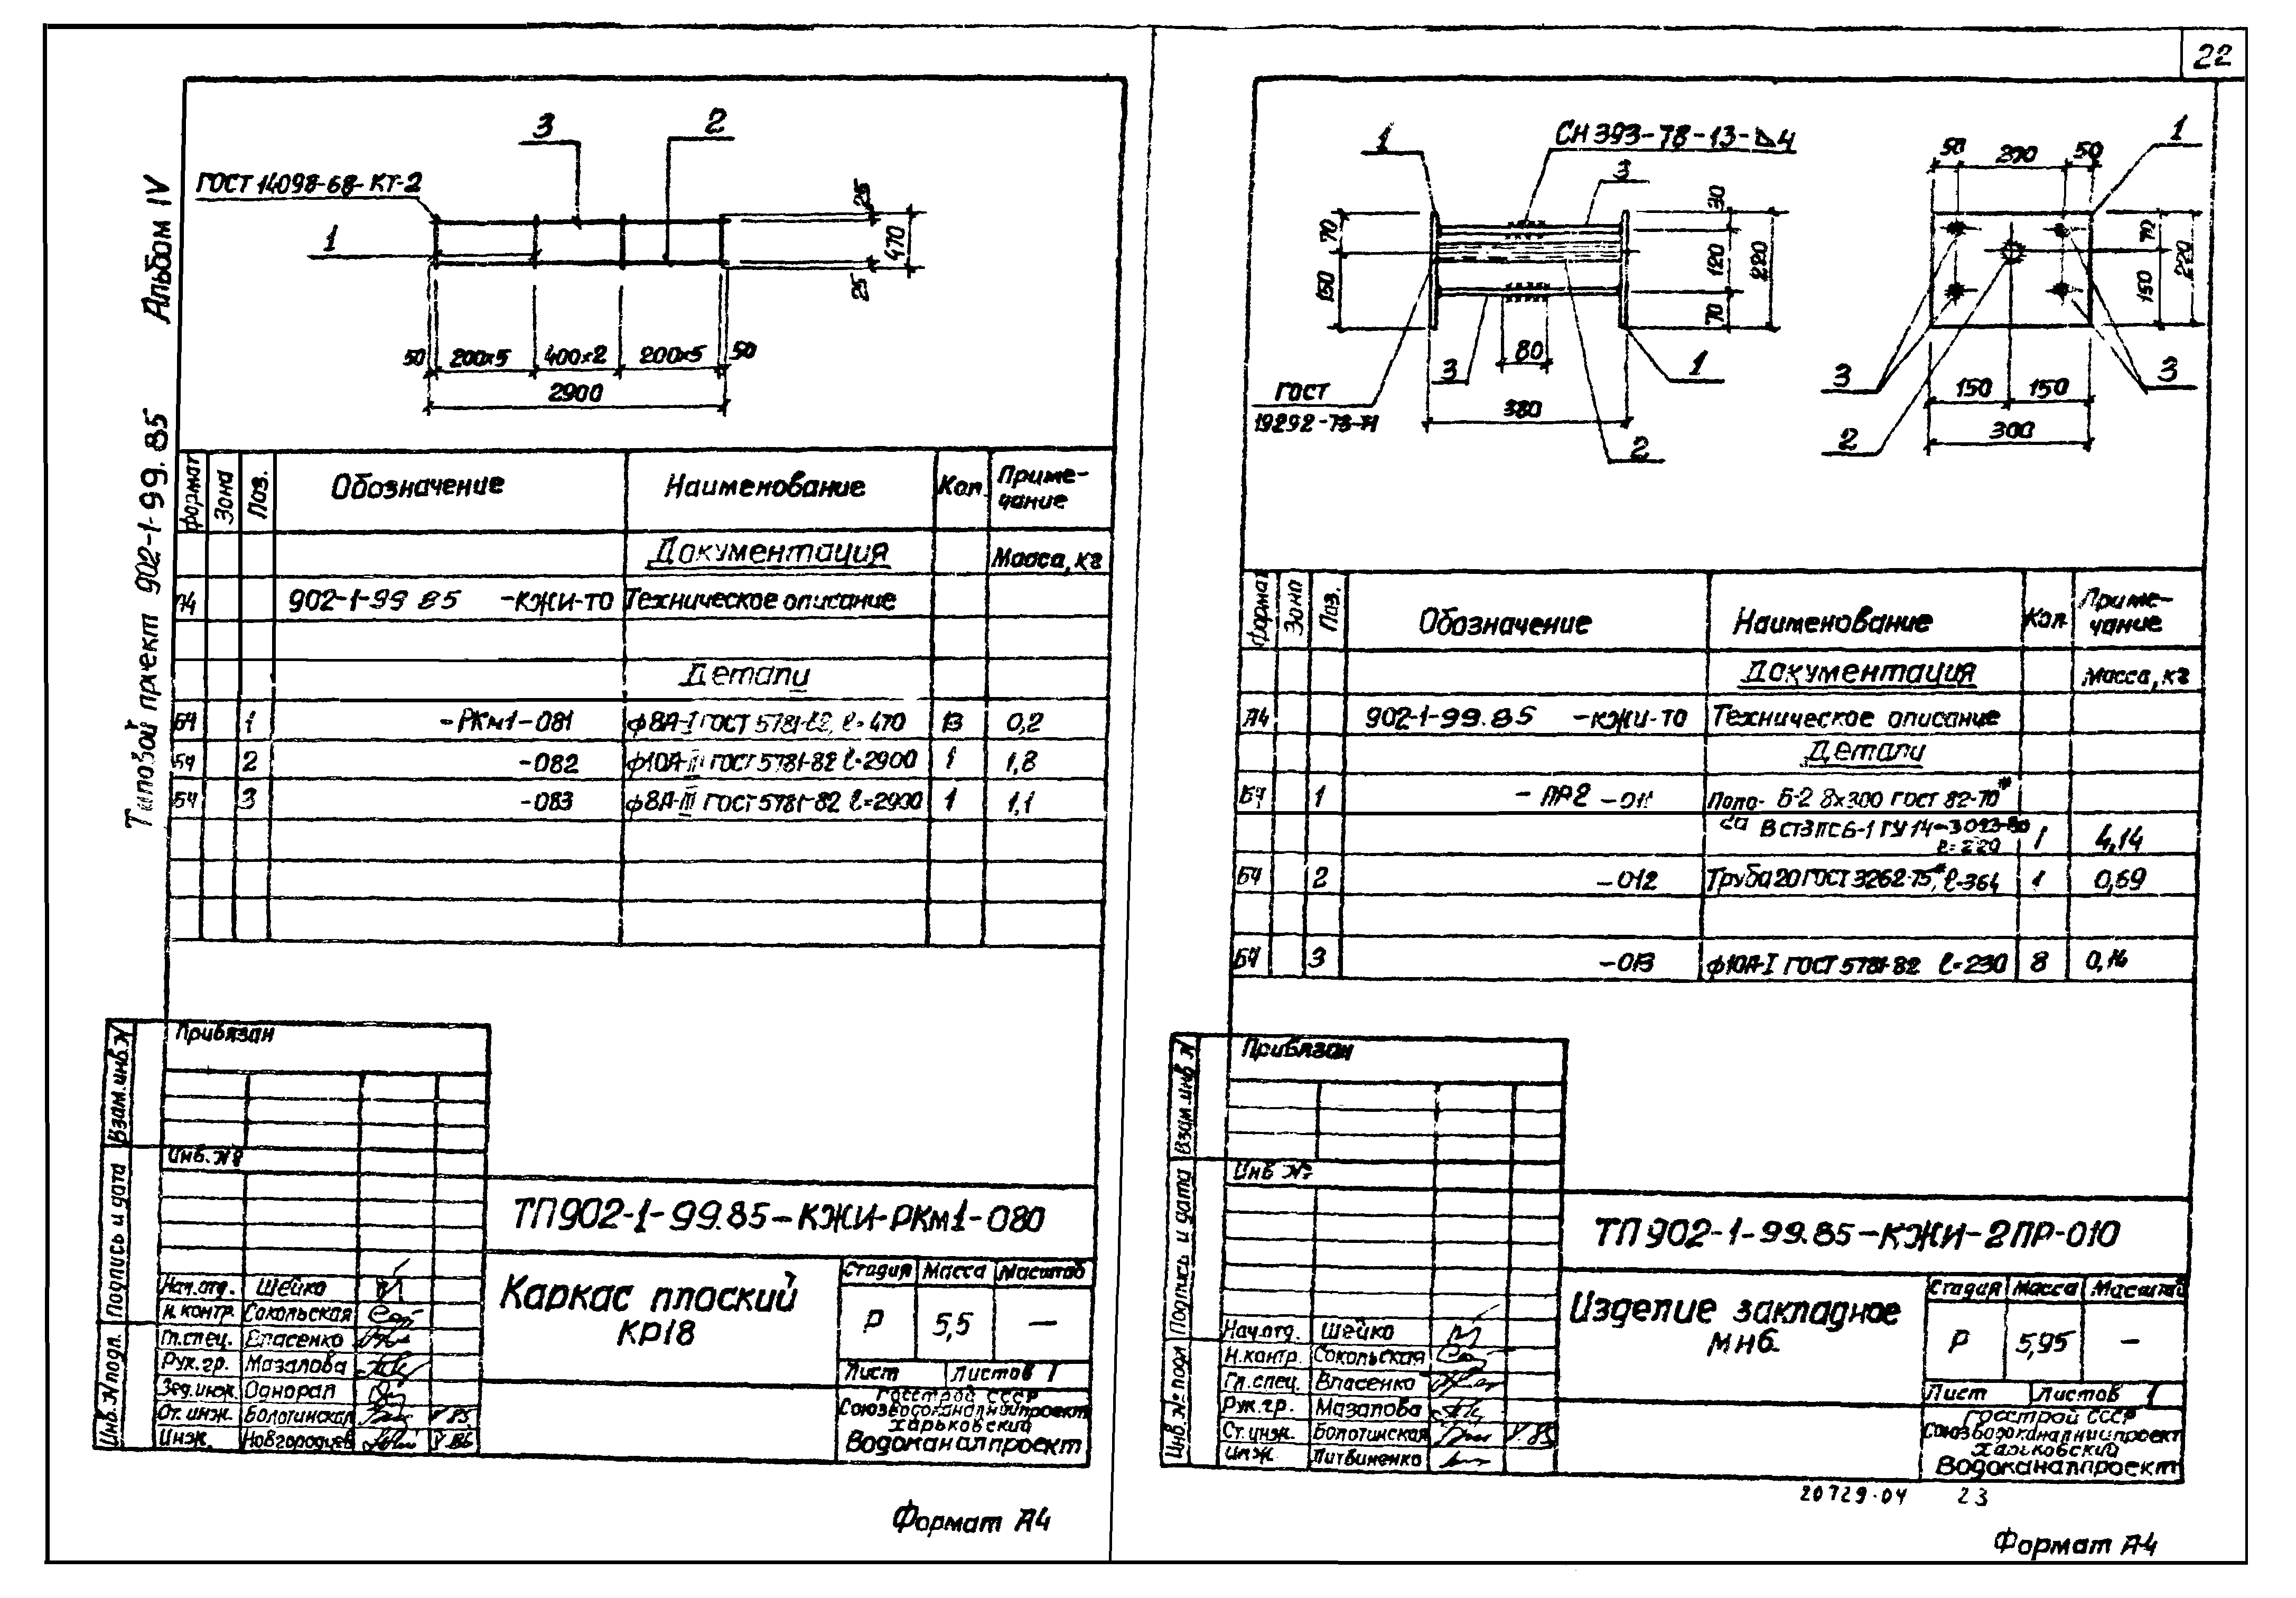 22
Альбом IV
Типовой проект 902-1-99.85
ГОСТ 14098-68-КТ-2
3
2
1
25
470
25
50
200х5
400х2
200х5
50
2900
Формат
Зона
Поз.
Обозначение
Наименование
Кол.
Приме-
чание
Документация
Масса, кг
А4 902-1-99 85 -КЖИ-ТО Техническое описание
Детали
БЧ 1 -РКм1-081 ф8А-I ГОСТ 5781-82, ℓ=470 13 0,2
БЧ 2 -082 ф10А-III ГОСТ 5781-82 ℓ=2900 1 1,8
БЧ 3 -083 ф8А-III ГОСТ 5781-82 ℓ=2900 1 1,1
Привязан
Инв. №
Взам.инв.№
Подпись и дата
Инв.№подл.
ТП902-1-99.85-КЖИ-РКм1-080
Нач.отд. Шейко
Н.контр. Сокольская
Гл.спец. Власенко
Рук.гр. Мазалова
Вед.инж. Однорал
Ст.инж. Болотинская V 85
Инж. Новгородцев
Каркас плоский
КР18
Стадия Масса Масштаб
Р 5,5 —
Лист Листов 1
Госстрой СССР
Союзводоканалниипроект
Харьковский
Водоканалпроект
Формат А4
1
СН 393-78-13-⊿4
3
70
150
30
120
70
220
80
3
1
ГОСТ
380
2
50
200
50
1
70
150
220
3
3
150
150
2
300
Формат
Зона
Поз.
Обозначение
Наименование
Кол.
Приме-
чание
Документация
Масса, кг
А4 902-1-99.85 -КЖИ-ТО Техническое описание
Детали
БЧ 1 -ПР2 -011 Поло- Б-2 8х300 ГОСТ 82-70*
са ВСт3пс6-1 ТУ14-3023-80
ℓ=220 1 4,14
БЧ 2 -012 Труба 20 ГОСТ 3262-75*, ℓ=364 1 0,69
БЧ 3 -013 ф10А-I ГОСТ 5781-82 ℓ=230 8 0,14
Привязан
Инв №
Взам.инв №
Подпись и дата
Инв.№ подл
ТП902-1-99.85-КЖИ-2ПР-010
Нач.отд. Шейко
Н.контр. Сокольская
Гл.спец. Власенко
Рук.гр. Мазалова
Ст.инж. Болотинская V.85
Инж Литвиненко
Изделие закладное
МН6.
Стадия Масса Масштаб
Р 5,95 —
Лист Листов 1
Госстрой СССР
Союзводоканалниипроект
Харьковский
Водоканалпроект
20729-04 23
Формат А4